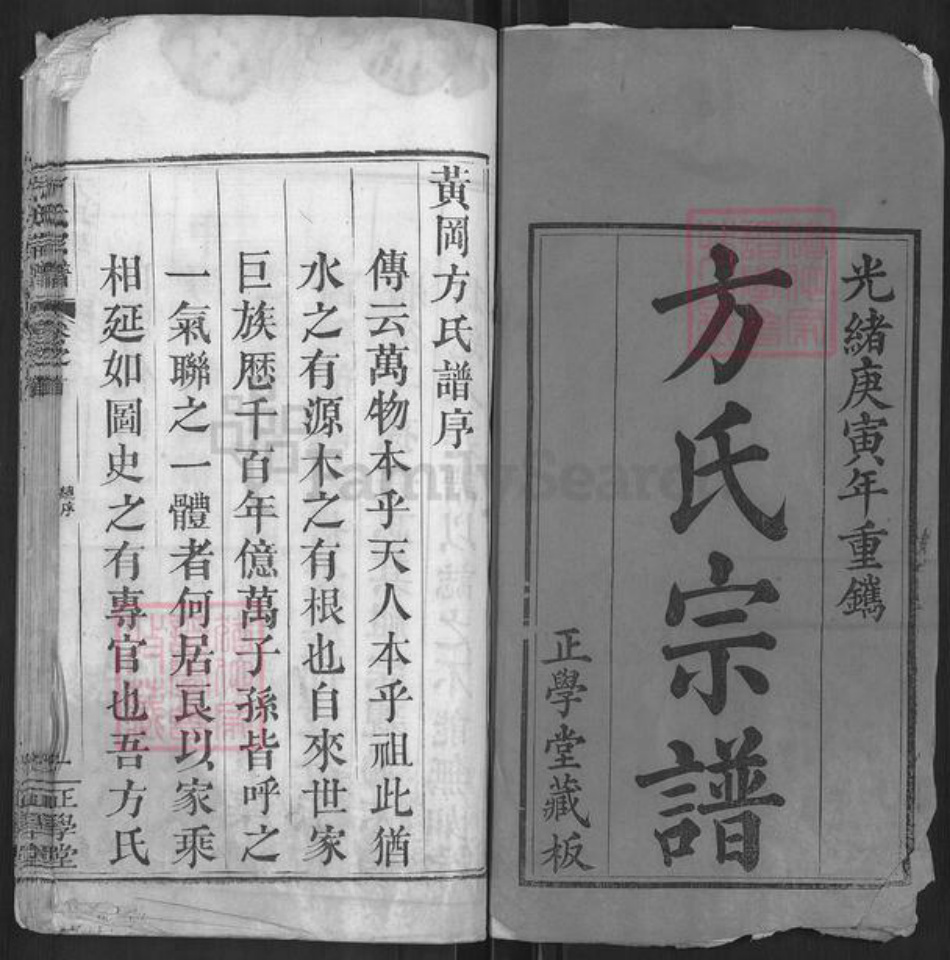 光緒庚寅年重鐫
方氏宗譜
正學堂藏板
黃岡方氏譜序
傳云萬物本乎天人本乎祖此猶
水之有源木之有根也自來世家
巨族歷千百年億萬子孫皆呼之
一氣聯之一體者何居良以家乘
相延如圖史之有專官也吾方氏
方氏宗譜
總序
一
正學堂
FamilySearch